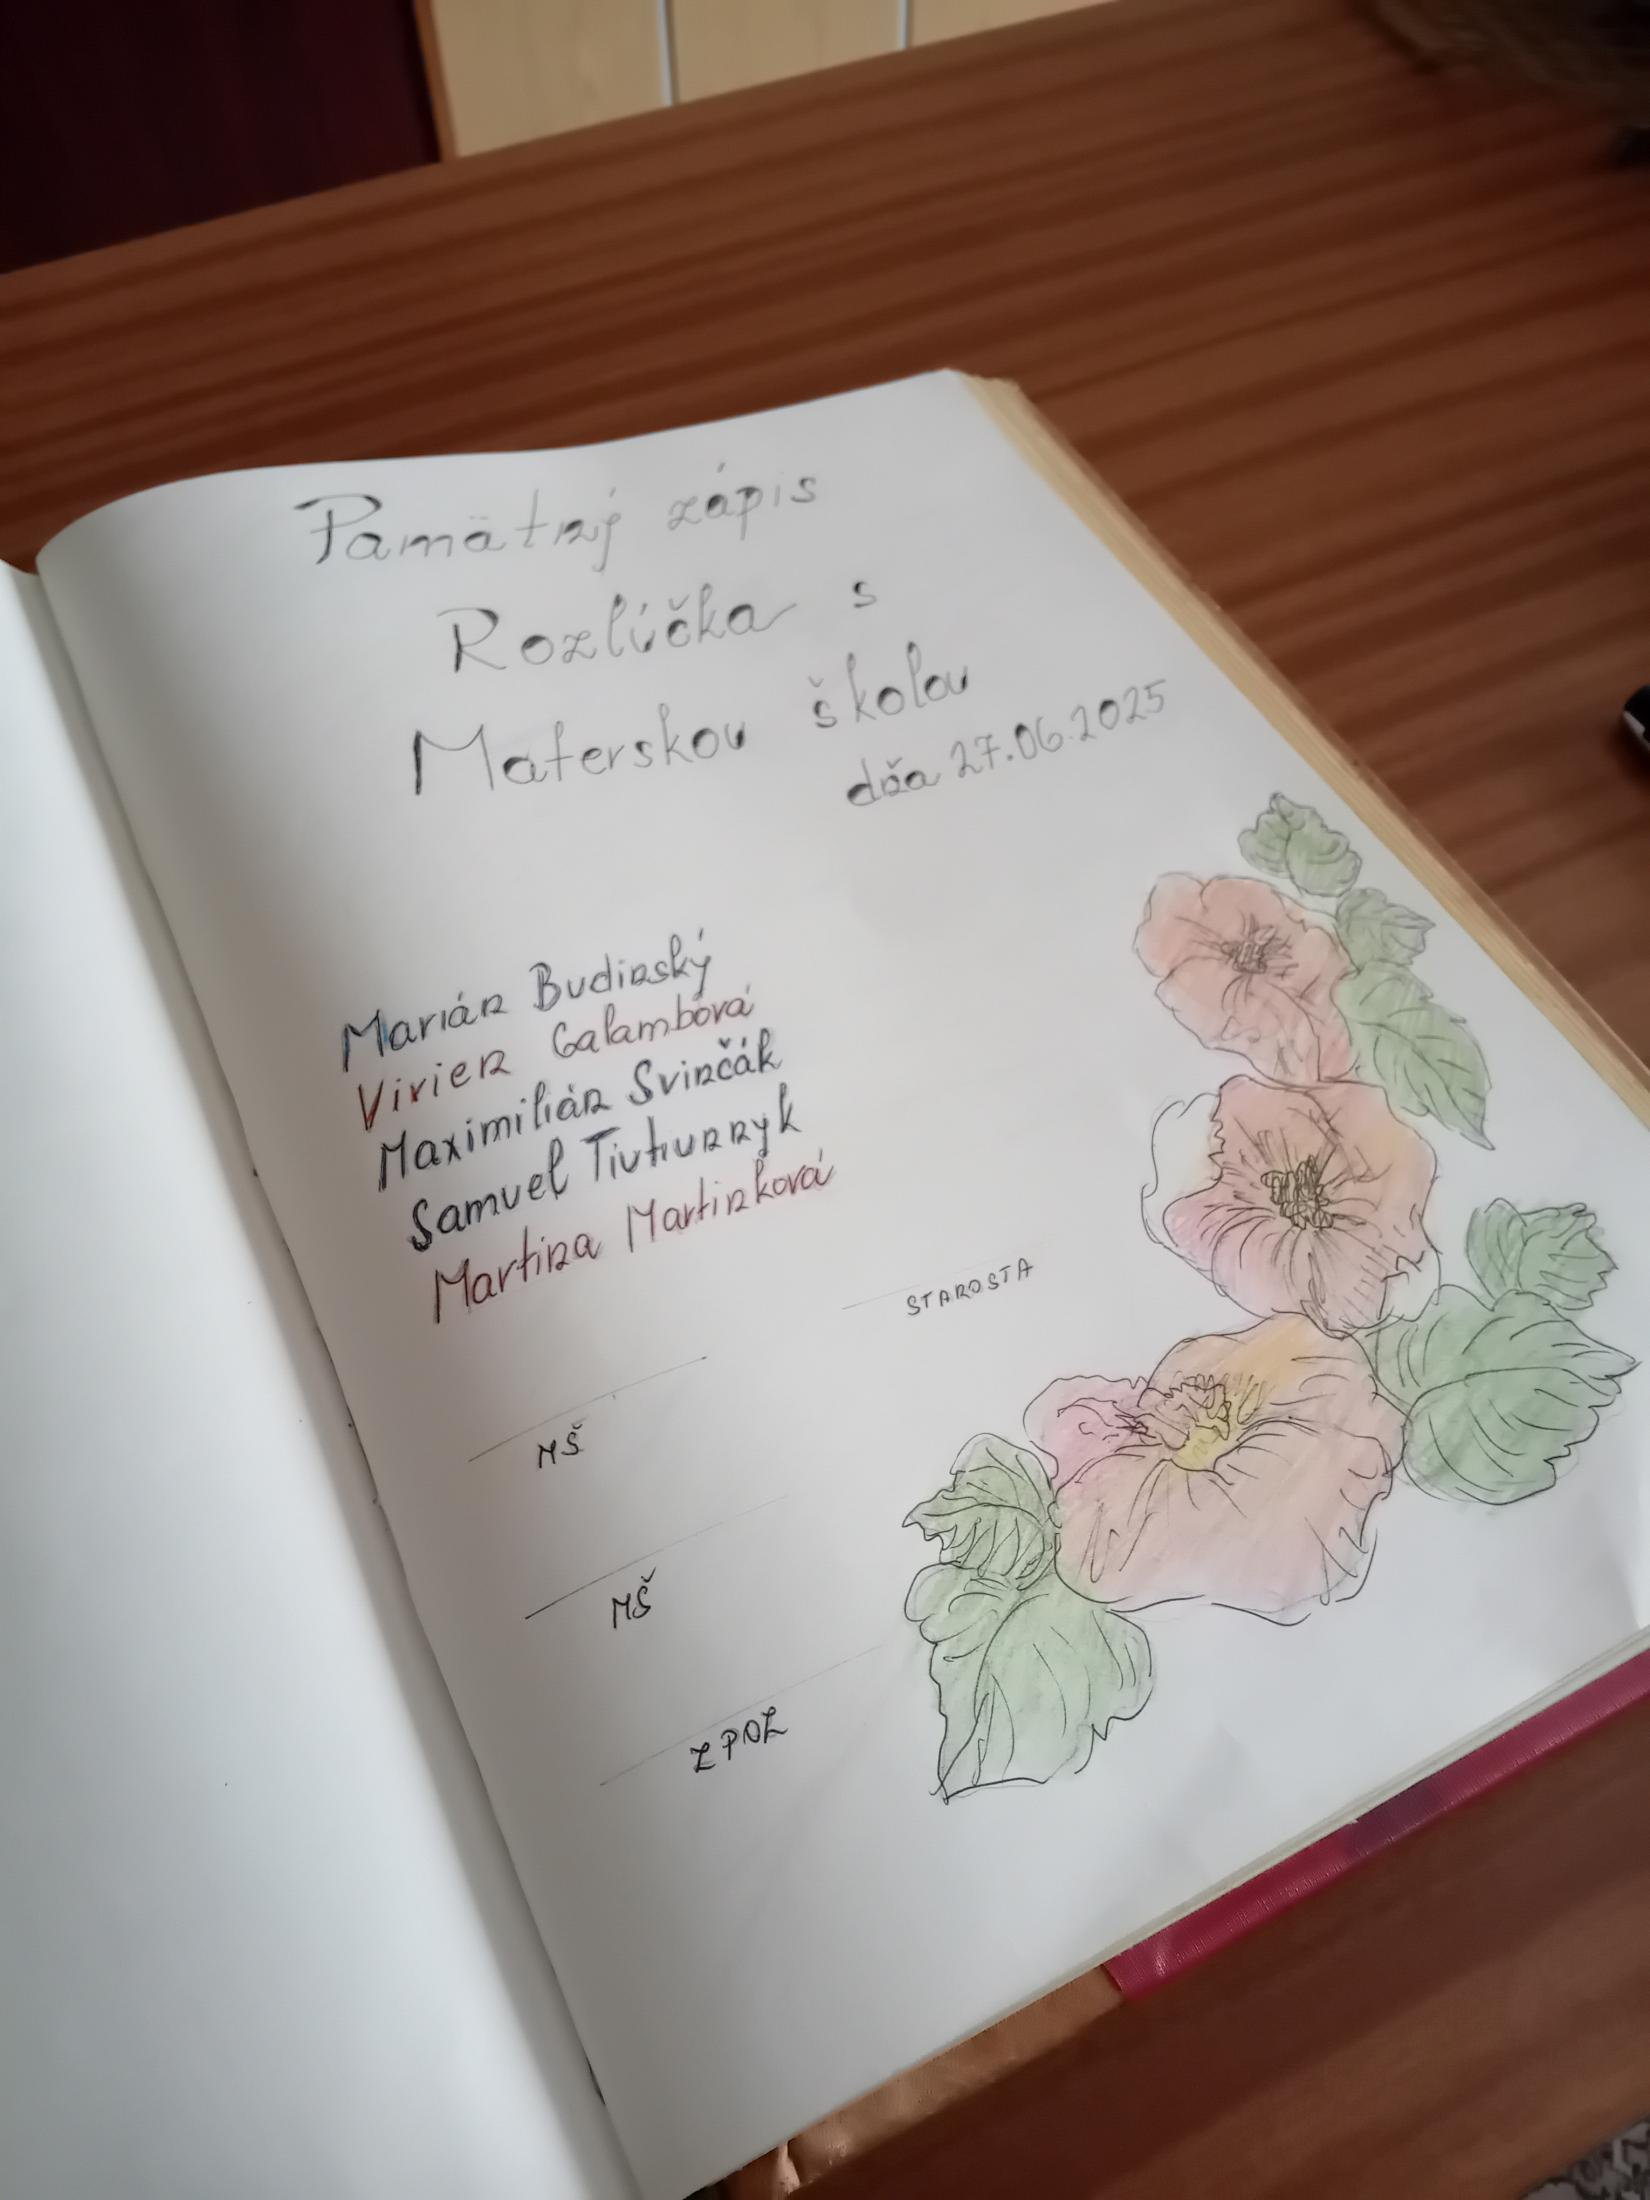 Pamätný zápis
Rozlúčka s
Materskou školou
dňa 27.06.2025
Marián Budinský
Vivien Galambová
Maximilián Svinčák
Samuel
Martina Martinková
STAROSTA
MŠ
MŠ
ZPOZ